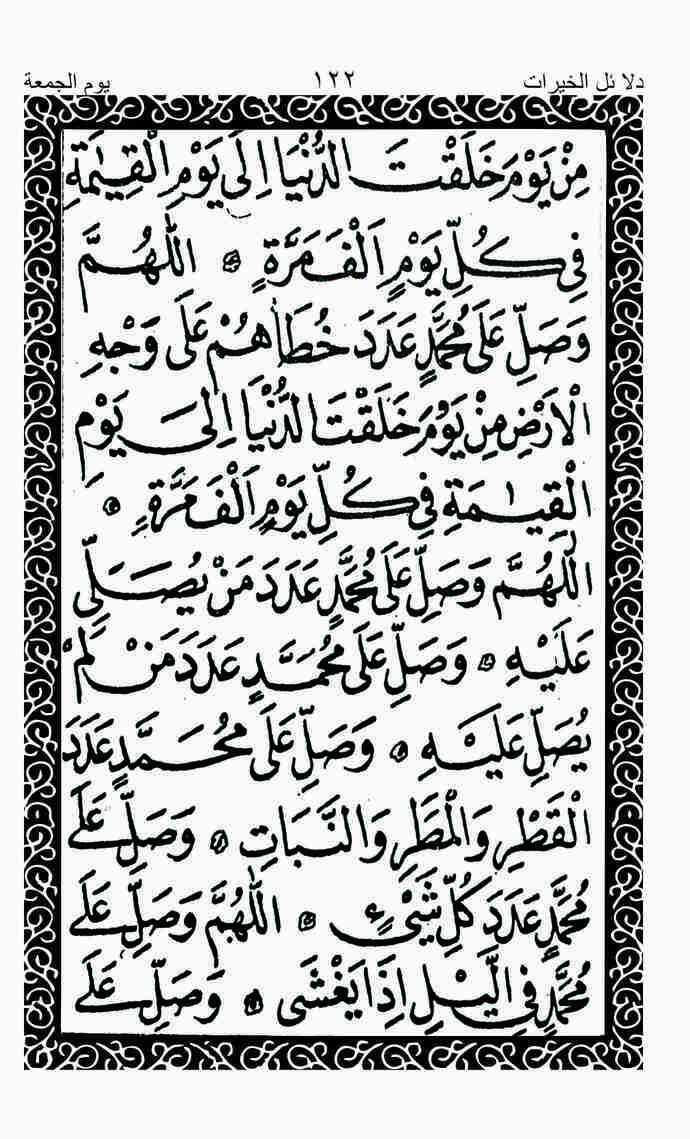 دلائل الخيرات ١٢٢ يوم الجمعة
مِنْ يَوْمَ خَلَقْتَ الدُّنْيَا اِلَى يَوْمِ الْقِيٰمَةِ
فِى كُلِّ يَوْمٍ اَلْفَ مَرَّةٍ ۞ اَللّٰهُمَّ
وَصَلِّ عَلَى مُحَمَّدٍ عَدَدَ خُطَاهُمْ عَلَى وَجْهِ
الْاَرْضِ مِنْ يَوْمَ خَلَقْتَ الدُّنْيَا اِلَى يَوْمِ
الْقِيٰمَةِ فِى كُلِّ يَوْمٍ اَلْفَ مَرَّةٍ ۞
اَللّٰهُمَّ وَصَلِّ عَلَى مُحَمَّدٍ عَدَدَ مَنْ يُصَلِّى
عَلَيْهِ ۞ وَصَلِّ عَلَى مُحَمَّدٍ عَدَدَ مَنْ لَمْ
يُصَلِّ عَلَيْهِ ۞ وَصَلِّ عَلَى مُحَمَّدٍ عَدَدَ
الْقَطْرِ وَالْمَطَرِ وَالنَّبَاتِ ۞ وَصَلِّ عَلَى
مُحَمَّدٍ عَدَدَ كُلِّ شَىْءٍ ۞ اَللّٰهُمَّ وَصَلِّ عَلَى
مُحَمَّدٍ فِى الَّيْلِ اِذَا يَغْشَى ۞ وَصَلِّ عَلَى